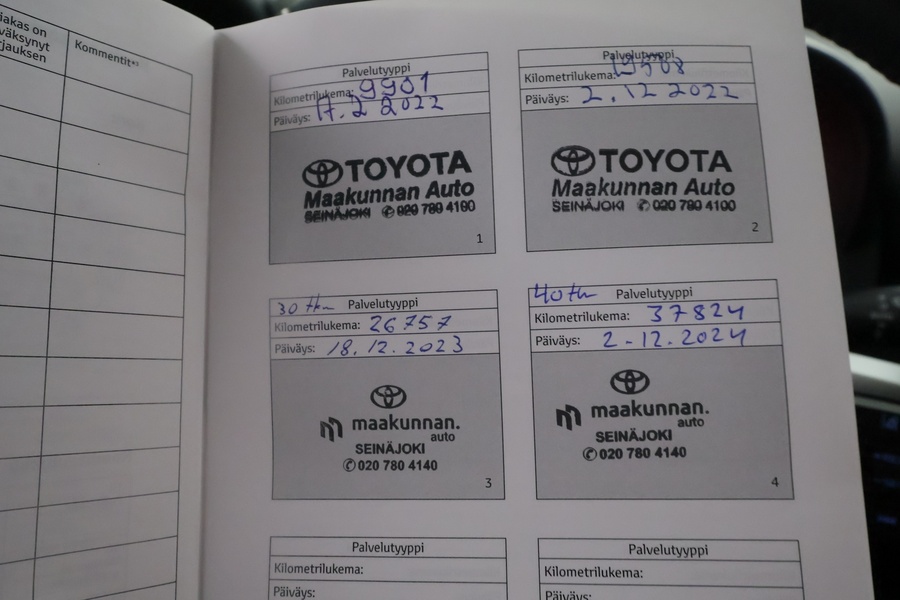 jakas on
väksynyt
rjauksen
Kommentit*³
Palvelutyyppi
Kilometrilukema: 9901
Päiväys: 17.2 2022
TOYOTA
Maakunnan Auto
SEINÄJOKI ✆ 020 780 4100
1
Palvelutyyppi
Kilometrilukema: 19508
Päiväys: 2.12 2022
TOYOTA
Maakunnan Auto
SEINÄJOKI ✆ 020 780 4100
2
30 tkm Palvelutyyppi
Kilometrilukema: 26757
Päiväys: 18.12.2023
maakunnan.
auto
SEINÄJOKI
✆ 020 780 4140
3
40 tkm Palvelutyyppi
Kilometrilukema: 37824
Päiväys: 2-12.2024
maakunnan.
auto
SEINÄJOKI
✆ 020 780 4140
4
Palvelutyyppi
Kilometrilukema:
Päiväys:
Palvelutyyppi
Kilometrilukema:
Päiväys: